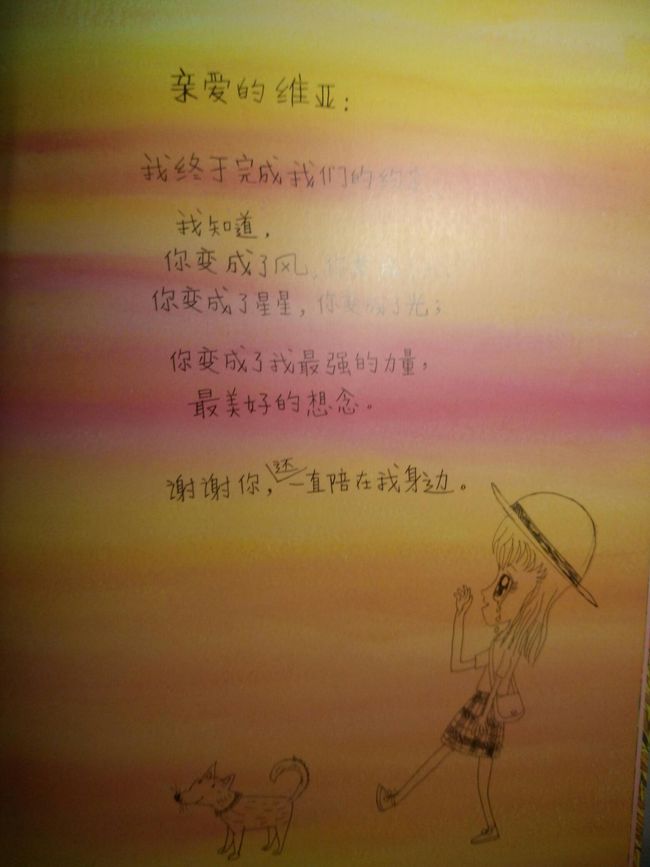 亲爱的维亚：
我终于完成我们的约
我知道，
你变成了风，你
你变成了星星，你变成了光；
你变成了我最强的力量，
最美好的想念。
谢谢你，还一直陪在我身边。